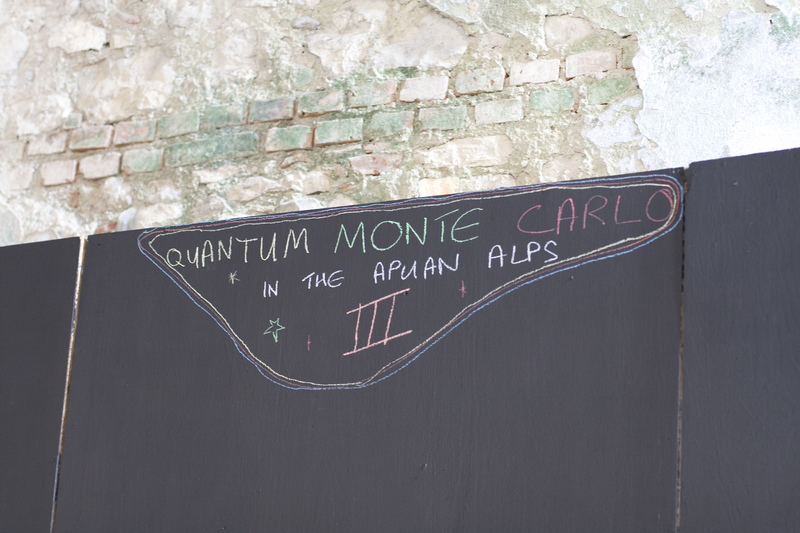 QUANTUM MONTE CARLO
IN THE APUAN ALPS
III